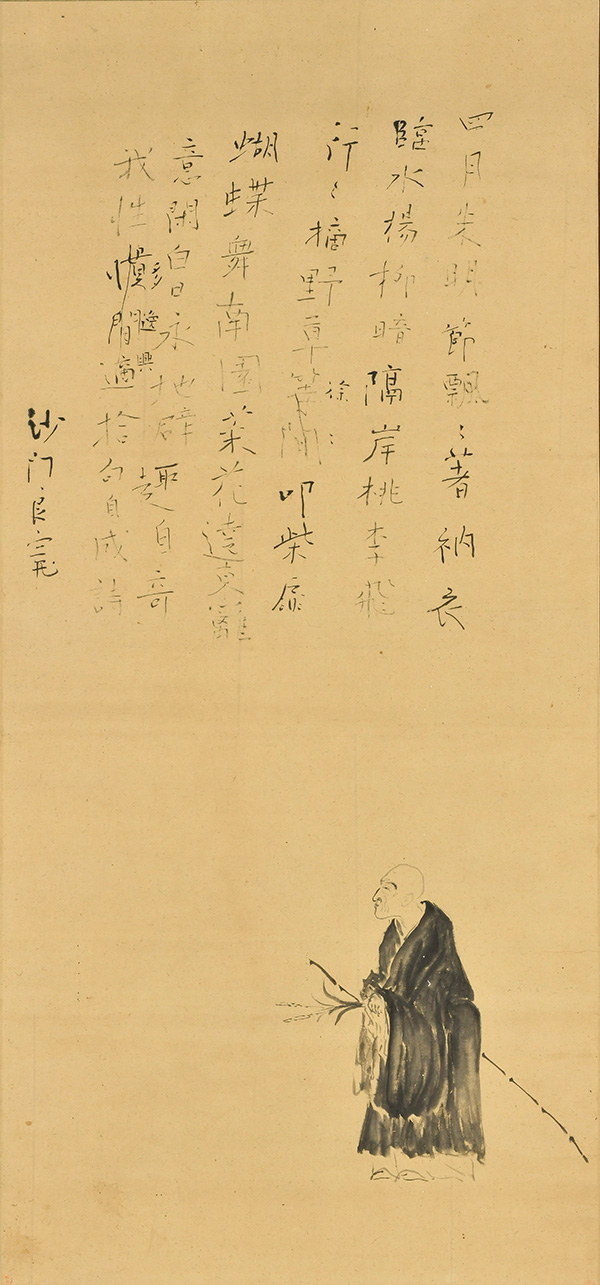 四月朱明節飄〻著衲衣
臨水楊柳暗隔岸桃李飛
徐〻
行〻摘野草等閑叩柴扉
蝴蝶舞南園菜花遶東籬
意閑白日永地僻趣自奇
多逸興
我性慣閒適拾句自成詩
沙門良寛